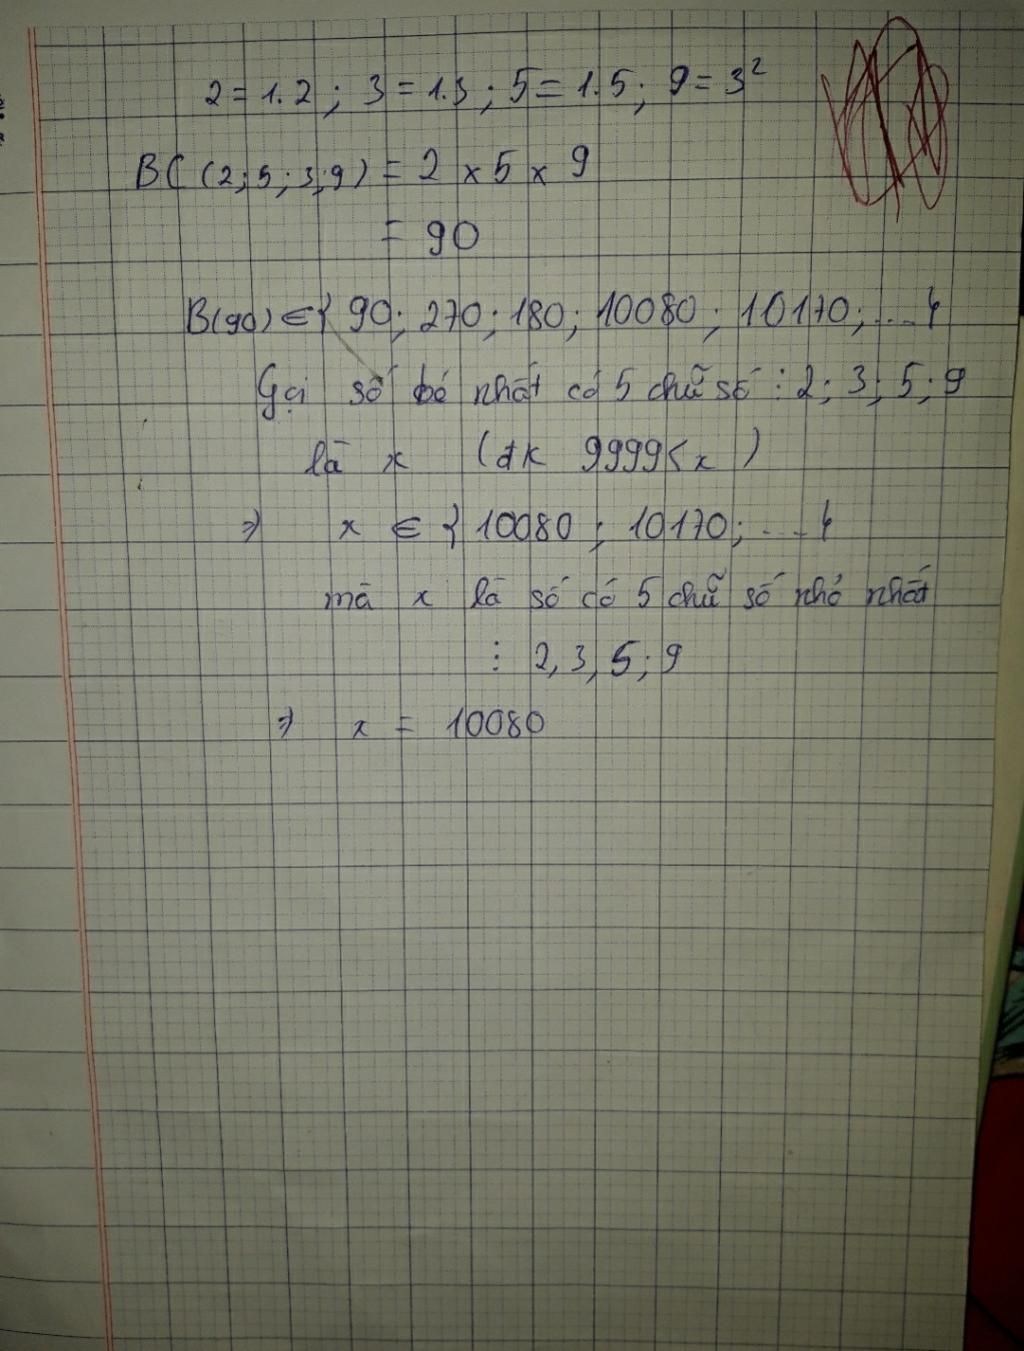 2 = 1.2 ; 3 = 1.3 ; 5 = 1.5 ; 9 = 3²
BC (2; 5; 3; 9) = 2 x 5 x 9
= 90
B(90) ∈ { 90; 270; 180; 10080; 10170; ... }
Gọi số bé nhất có 5 chữ số ⋮ 2; 3; 5; 9
là x (đk 9999 < x )
⇒ x ∈ { 10080 ; 10170; ... }
mà x là số có 5 chữ số nhỏ nhất
⋮ 2, 3, 5; 9
⇒ x = 10080